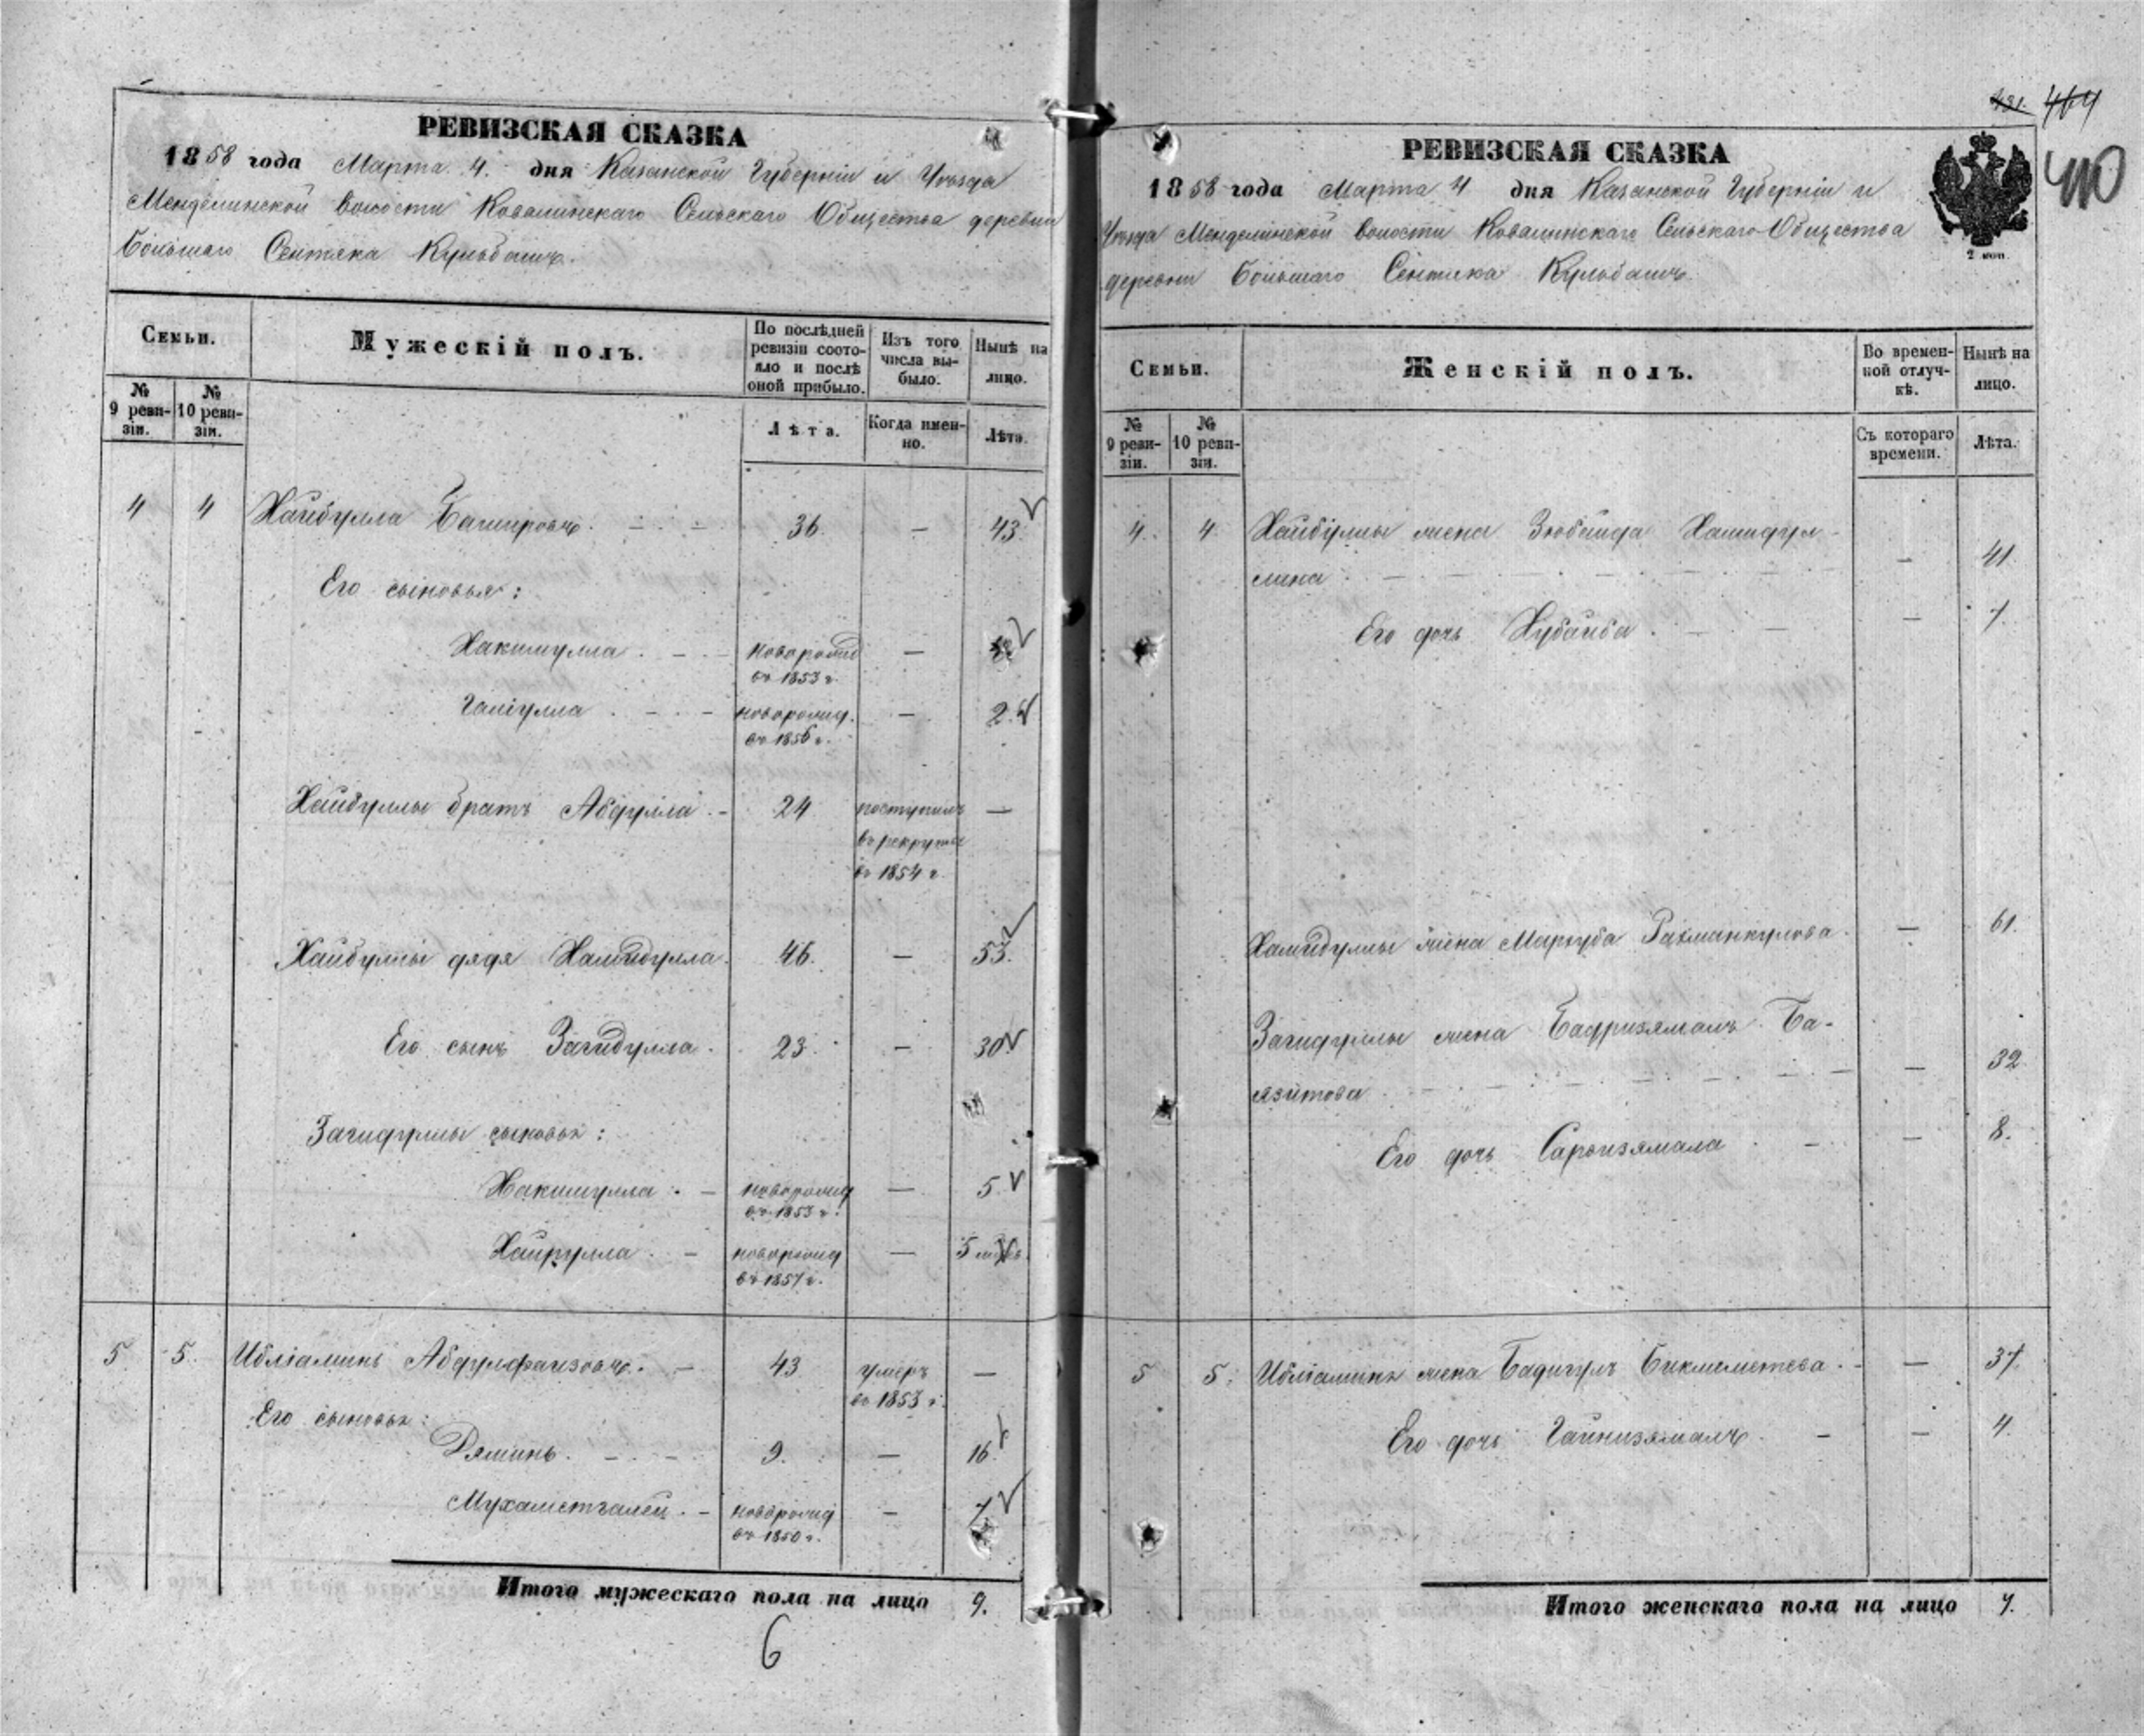 РЕВИЗСКАЯ СКАЗКА
1858 года Марта 4. дня Казанской Губернiи и Уѣзда
Менделинской Волости Ковалинскаго Сельскаго Общества деревни
Большаго Сентяка Кульбашъ.
Семьи.
Мужескiй полъ.
По послѣдней ревизiи состояло и послѣ оной прибыло.
Изъ того числа выбыло.
Нынѣ на лицо.
№ 9 ревизiи.
№ 10 ревизiи.
Лѣта.
Когда именно.
Лѣта.
4 4 Хайбулла Башировъ. 36 — 43
Его сыновья:
Хакимулла. — новорожд — 
въ 1853 г.
Галiулла — новорожд. — 2.
въ 1856 г.
Хайбуллы братъ Абдулла — 24 поступилъ —
въ рекруты
въ 1854 г.
Хайбуллы дядя Хамидулла. 46. — 53.
Его сынъ Загидулла. 23. — 30
Загидуллы сыновья:
Хакимулла. — новорожд — 5
въ 1853 г.
Хайрулла. — новорожд — 5
въ 1857 г.
5. 5. Ибнiаминъ Абдулфаизовъ. — 43 умеръ —
въ 1853 г.
Его сыновья:
Ямминь. — 9. — 16.
Мухаметгалей. — новорожд — 7.
въ 1850 г.
Итого мужескаго пола на лицо 9.
6
431. 464
410
РЕВИЗСКАЯ СКАЗКА
1858 года Марта 4 дня Казанской Губернiи и
Уѣзда Менделинской Волости Ковалинскаго Сельскаго Общества
деревни Большаго Сентяка Кульбашъ.
2 коп.
Семьи.
Женскiй полъ.
Во временной отлучкѣ.
Нынѣ на лицо.
№ 9 ревизiи.
№ 10 ревизiи.
Съ котораго времени.
Лѣта.
4. 4 Хайбуллы жена Зюбайда Хамидул-
лина — 41.
Его дочь Хубайба. — 7.
Хамидуллы жена Маргуба Рахманкулова. — 61.
Загидуллы жена Бадризямалъ Ба-
язитова — 32
Его дочь Сарвизямала — 8.
5 5. Ибнiамина жена Бадигулъ Бикмеметева. — 37.
Его дочь Гайнизямалъ. — 4.
Итого женскаго пола на лицо 7.